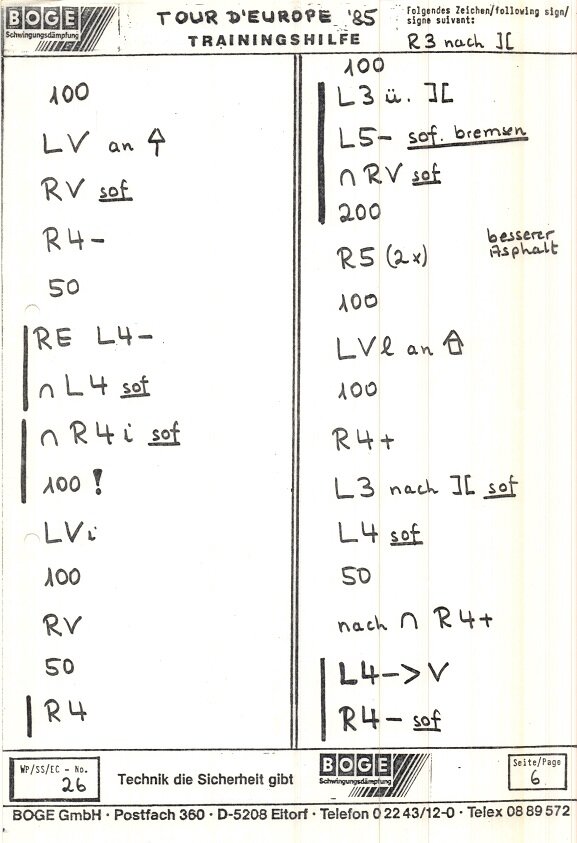 BOGE
Schwingungsdämpfung
TOUR D'EUROPE '85
TRAININGSHILFE
folgendes Zeichen/following sign/
signe suivant:
R3 nach ][
100
LV an ⇧
RV sof
R4-
50
RE L4-
∩ L4 sof
∩ R4 i sof
100 !
LVi
100
RV
50
R4
100
L3 ü. ][
L5- sof. bremsen
∩ RV sof
200
R5 (2x)
besserer
Asphalt
100
LVl an ⇧
100
R4+
L3 nach ][ sof
L4 sof
50
nach ∩ R4+
L4-> V
R4- sof
WP/SS/EC - No.
26
Technik die Sicherheit gibt
BOGE
Schwingungsdämpfung
Seite/Page
6
BOGE GmbH · Postfach 360 · D-5208 Eitorf · Telefon 0 22 43/12-0 · Telex 08 89 572